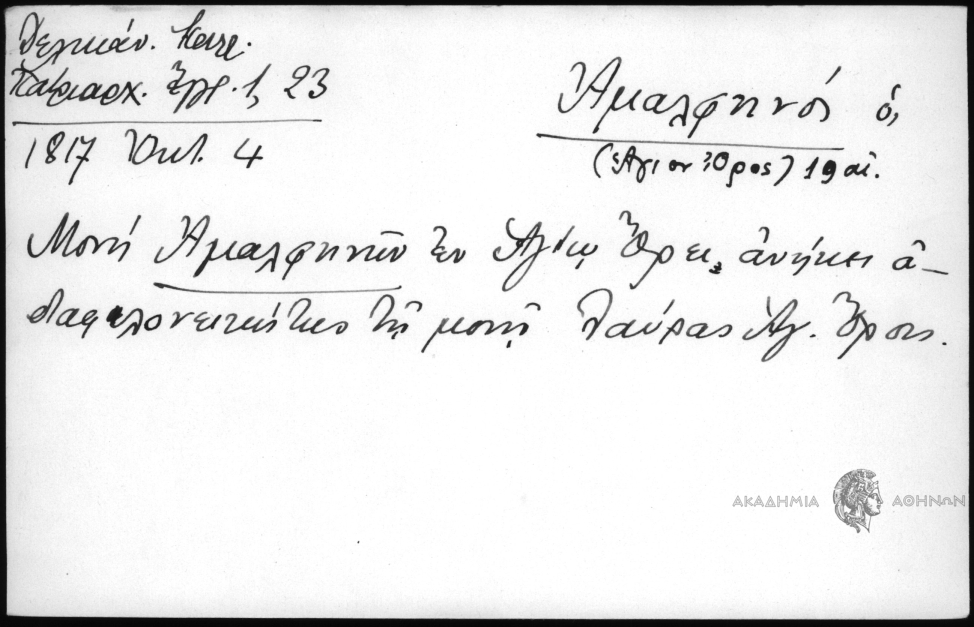 Δελικάν. Κατρ.
Πατριαρχ. Ἔγγρ. 1, 23
1817 Ὀκτ. 4
Ἀμαλφηνός ὁ,
(Ἅγιον Ὄρος) 19 αἰ.
Μονή Ἀμαλφηνῶν ἐν Ἁγίῳ Ὄρει, ἀνήκει ἀ-
ναφαλονειτικῶς τῇ μονῇ Λαύρας Ἁγ. Ὄρους.
ΑΚΑΔΗΜΙΑ ΑΘΗΝΩΝ